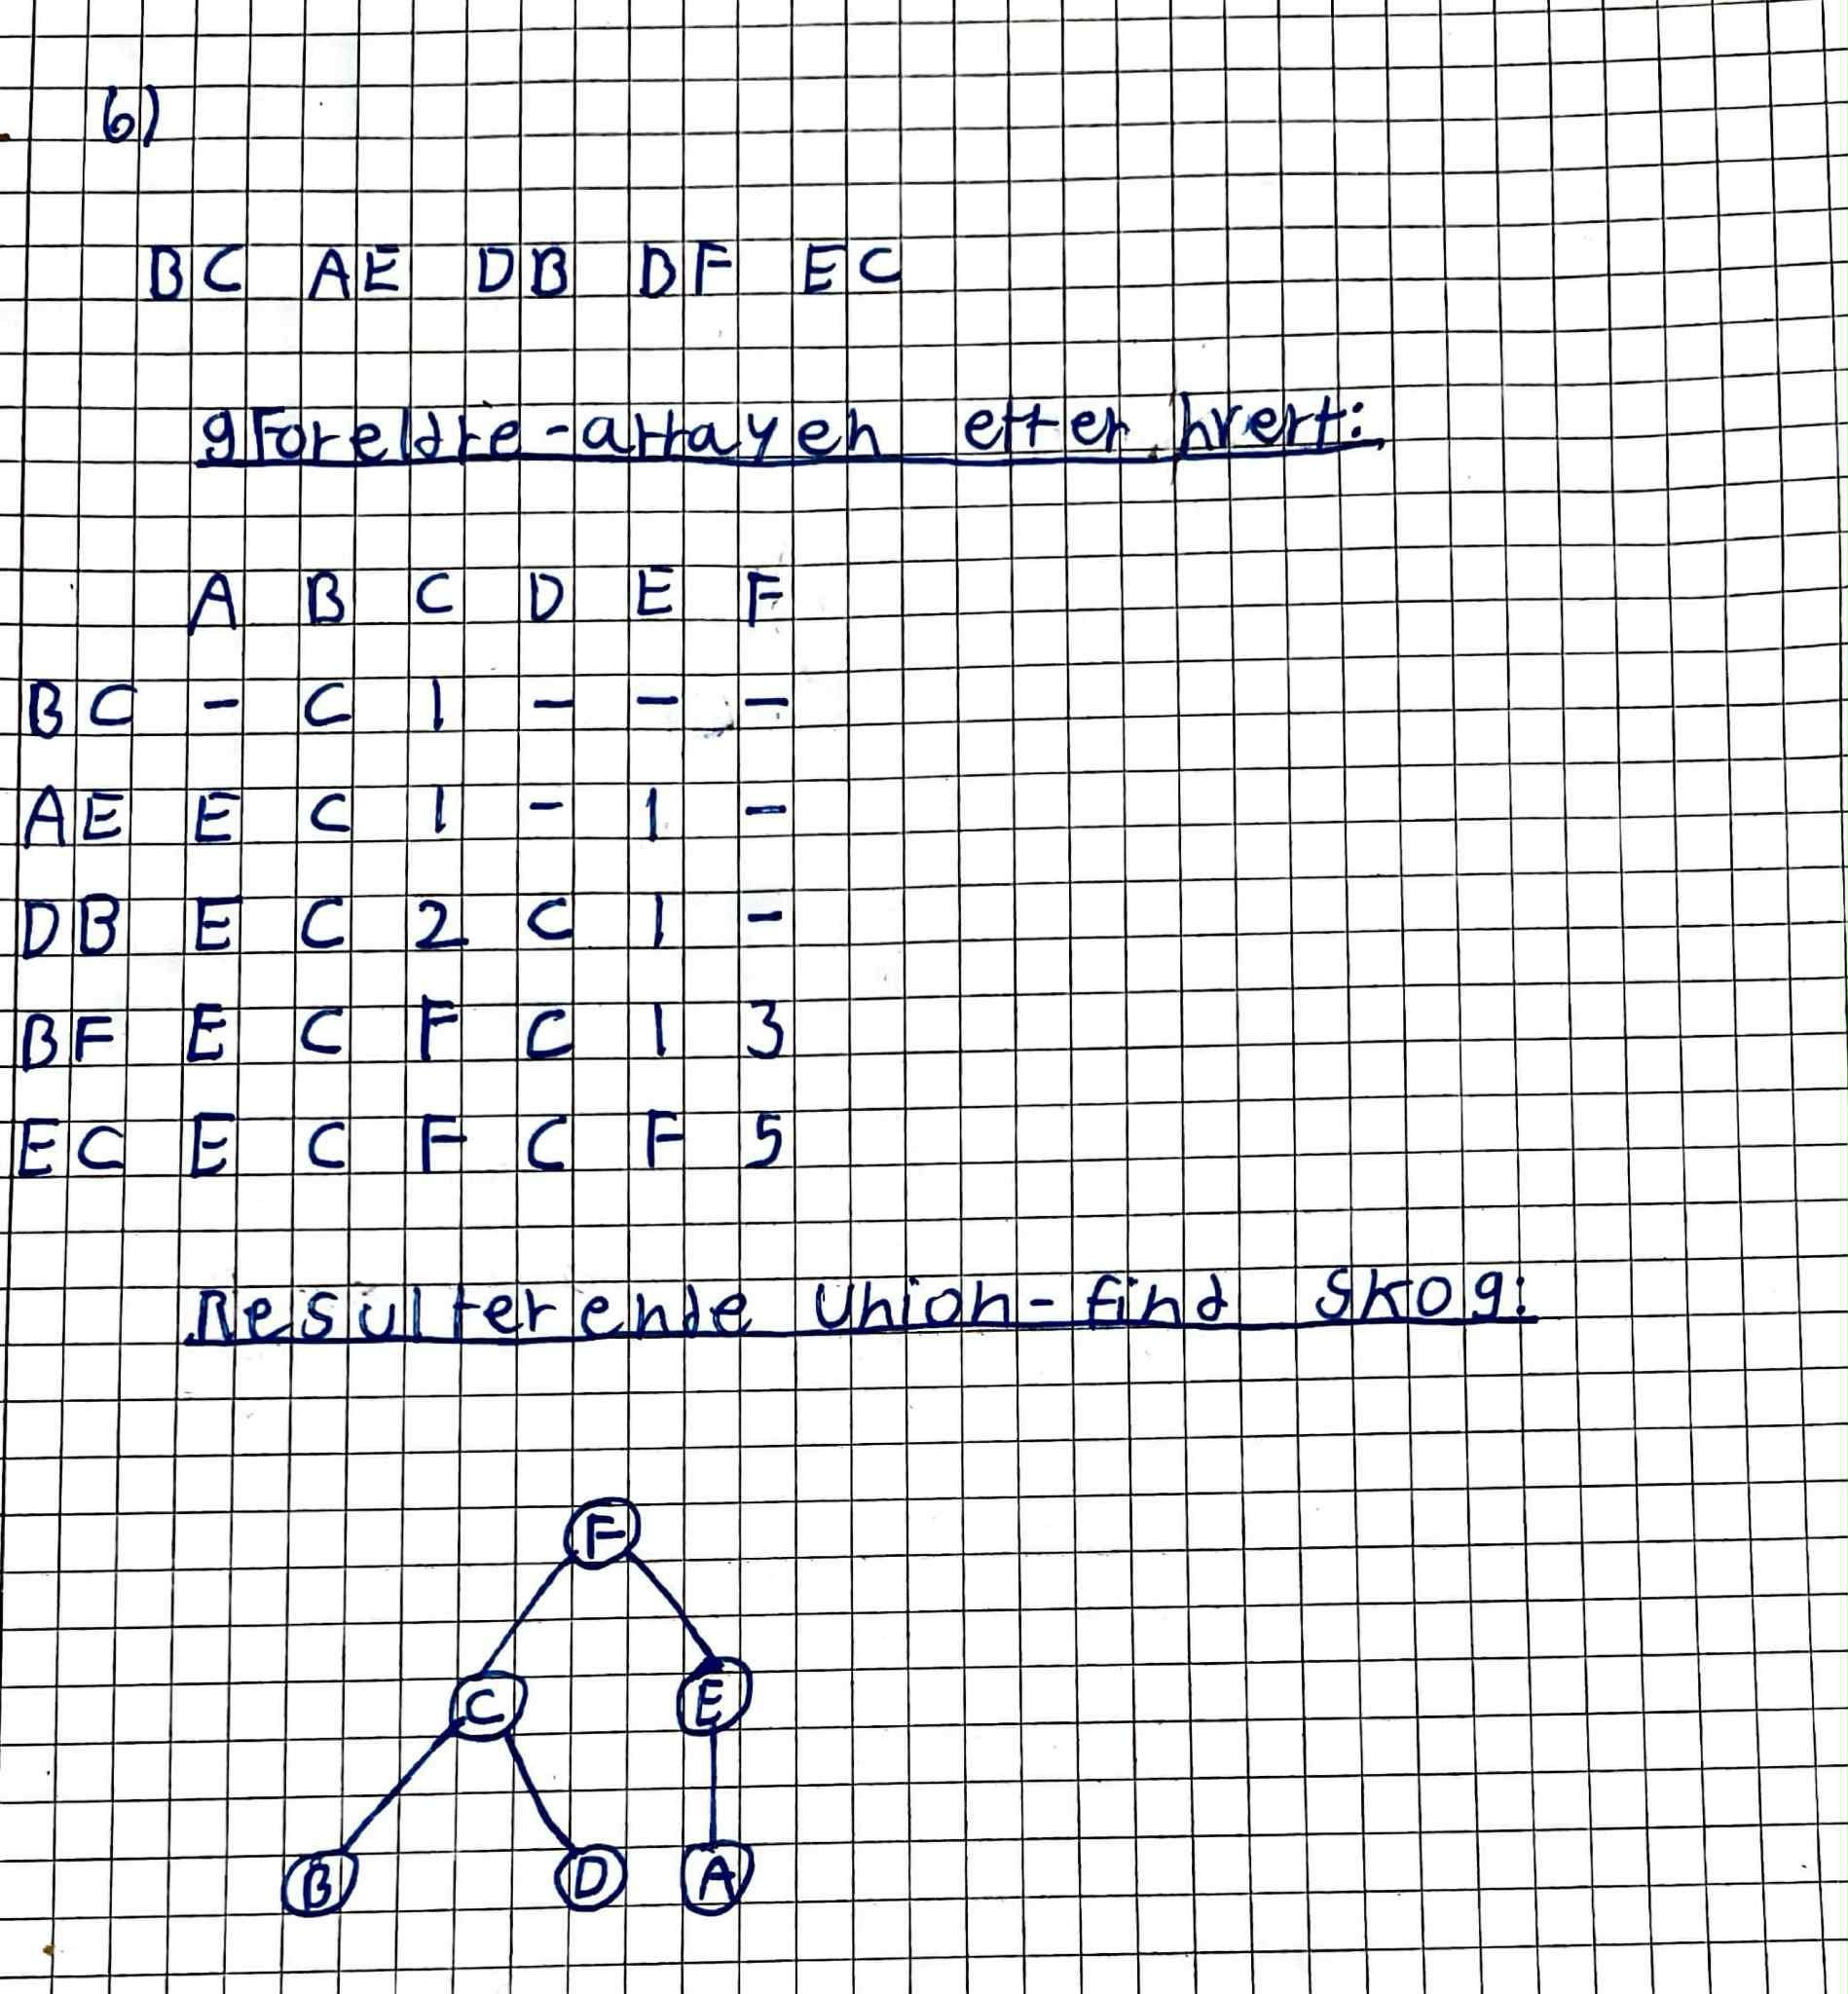 6)
BC AE DB BF EC
gForeldre-arrayen etter hvert:
A B C D E F
BC - C 1 - - -
AE E C 1 - 1 -
DB E C 2 C 1 -
BF E C F C 1 3
EC E C F C F 5
Resulterende Union-find skog:
F
C E
B D A